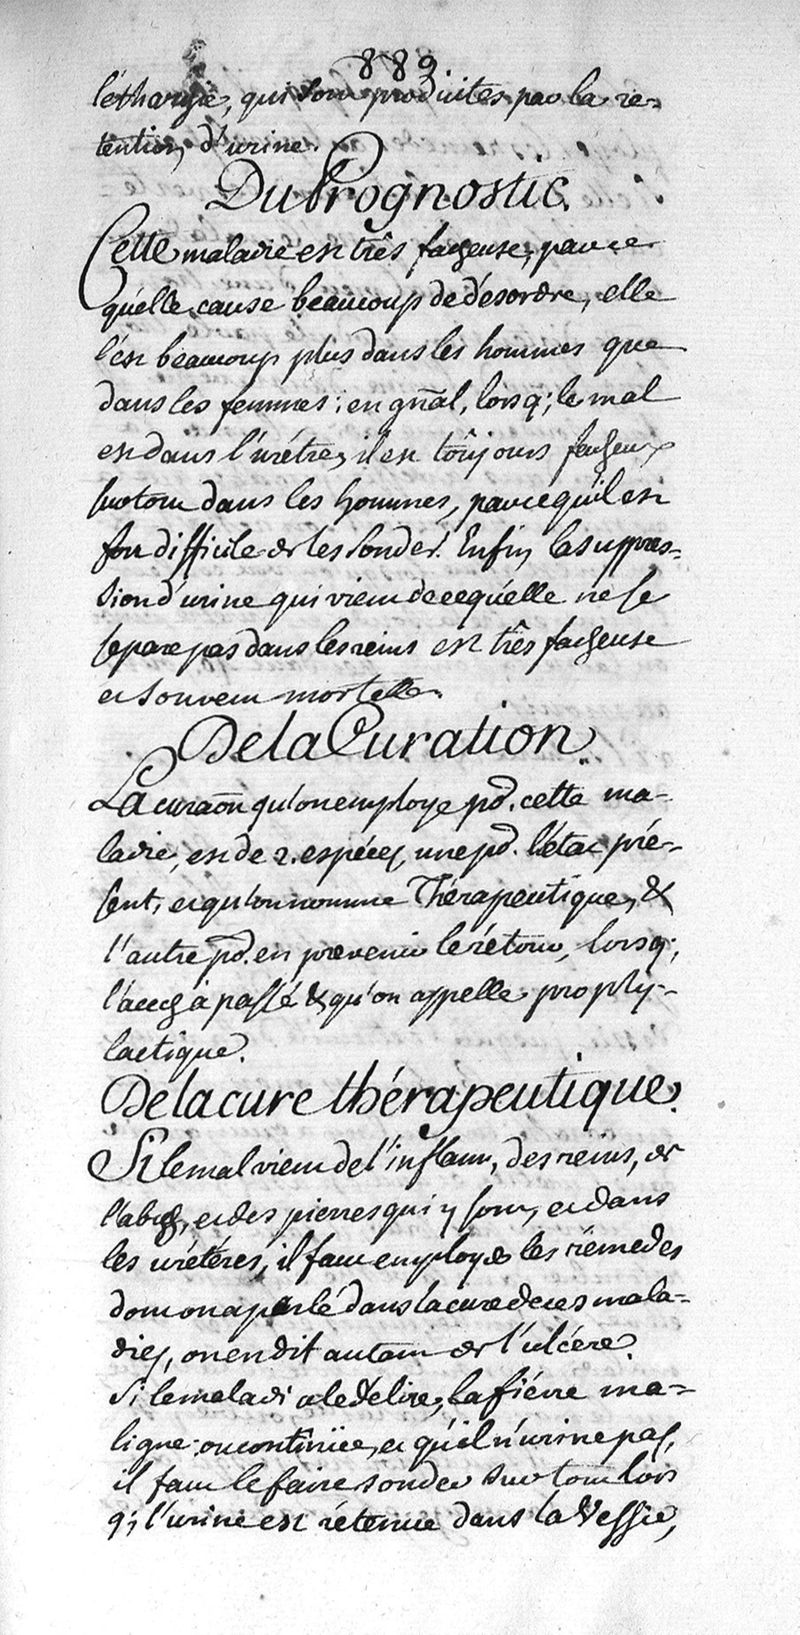 889
léthargie, qui sont produites par la re=
tention d'urine.
Du Prognostic.
Cette maladie est três facheuse, parce
qu'elle cause beaucoup de désordre, elle
l'est beaucoup plus dans les hommes que
dans les femmes; en gñal, lorsq; le mal
est dans l'urétre, il est toûjours facheux
surtout dans les hommes, parcequ'il est
fort difficile de les sonder. Enfin la suppres=
sion d'urine qui vient de ce qu'elle ne se
separe pas dans les reins est três facheuse
et souvent mortelle.
De la Curation.
La curaõn qu'on employe pr. cette ma-
ladie, est de 2. espéces, une pr. l'état pré-
sent, et qu'on nomme Thérapeutique, &
l'autre pr. en prevenir le rétour, lorsq;
l'accès à passé & qu'on appelle prophy-
lactique.
De la cure thérapeutique.
Si le mal vient de l'inflam, des reins, de
l'abcès, et des pierres qui y sont, et dans
les urétéres, il faut employer les rémedes
dont on a parlé dans la cure de ces mala=
dies, on en dit autant de l'ulcére.
Si le malade a le délire, la fiévre ma=
ligne ou continüe, et qu'il n'urine pas,
il faut le faire sonder surtout lors
q; l'urine est rétenue dans la Vessie,